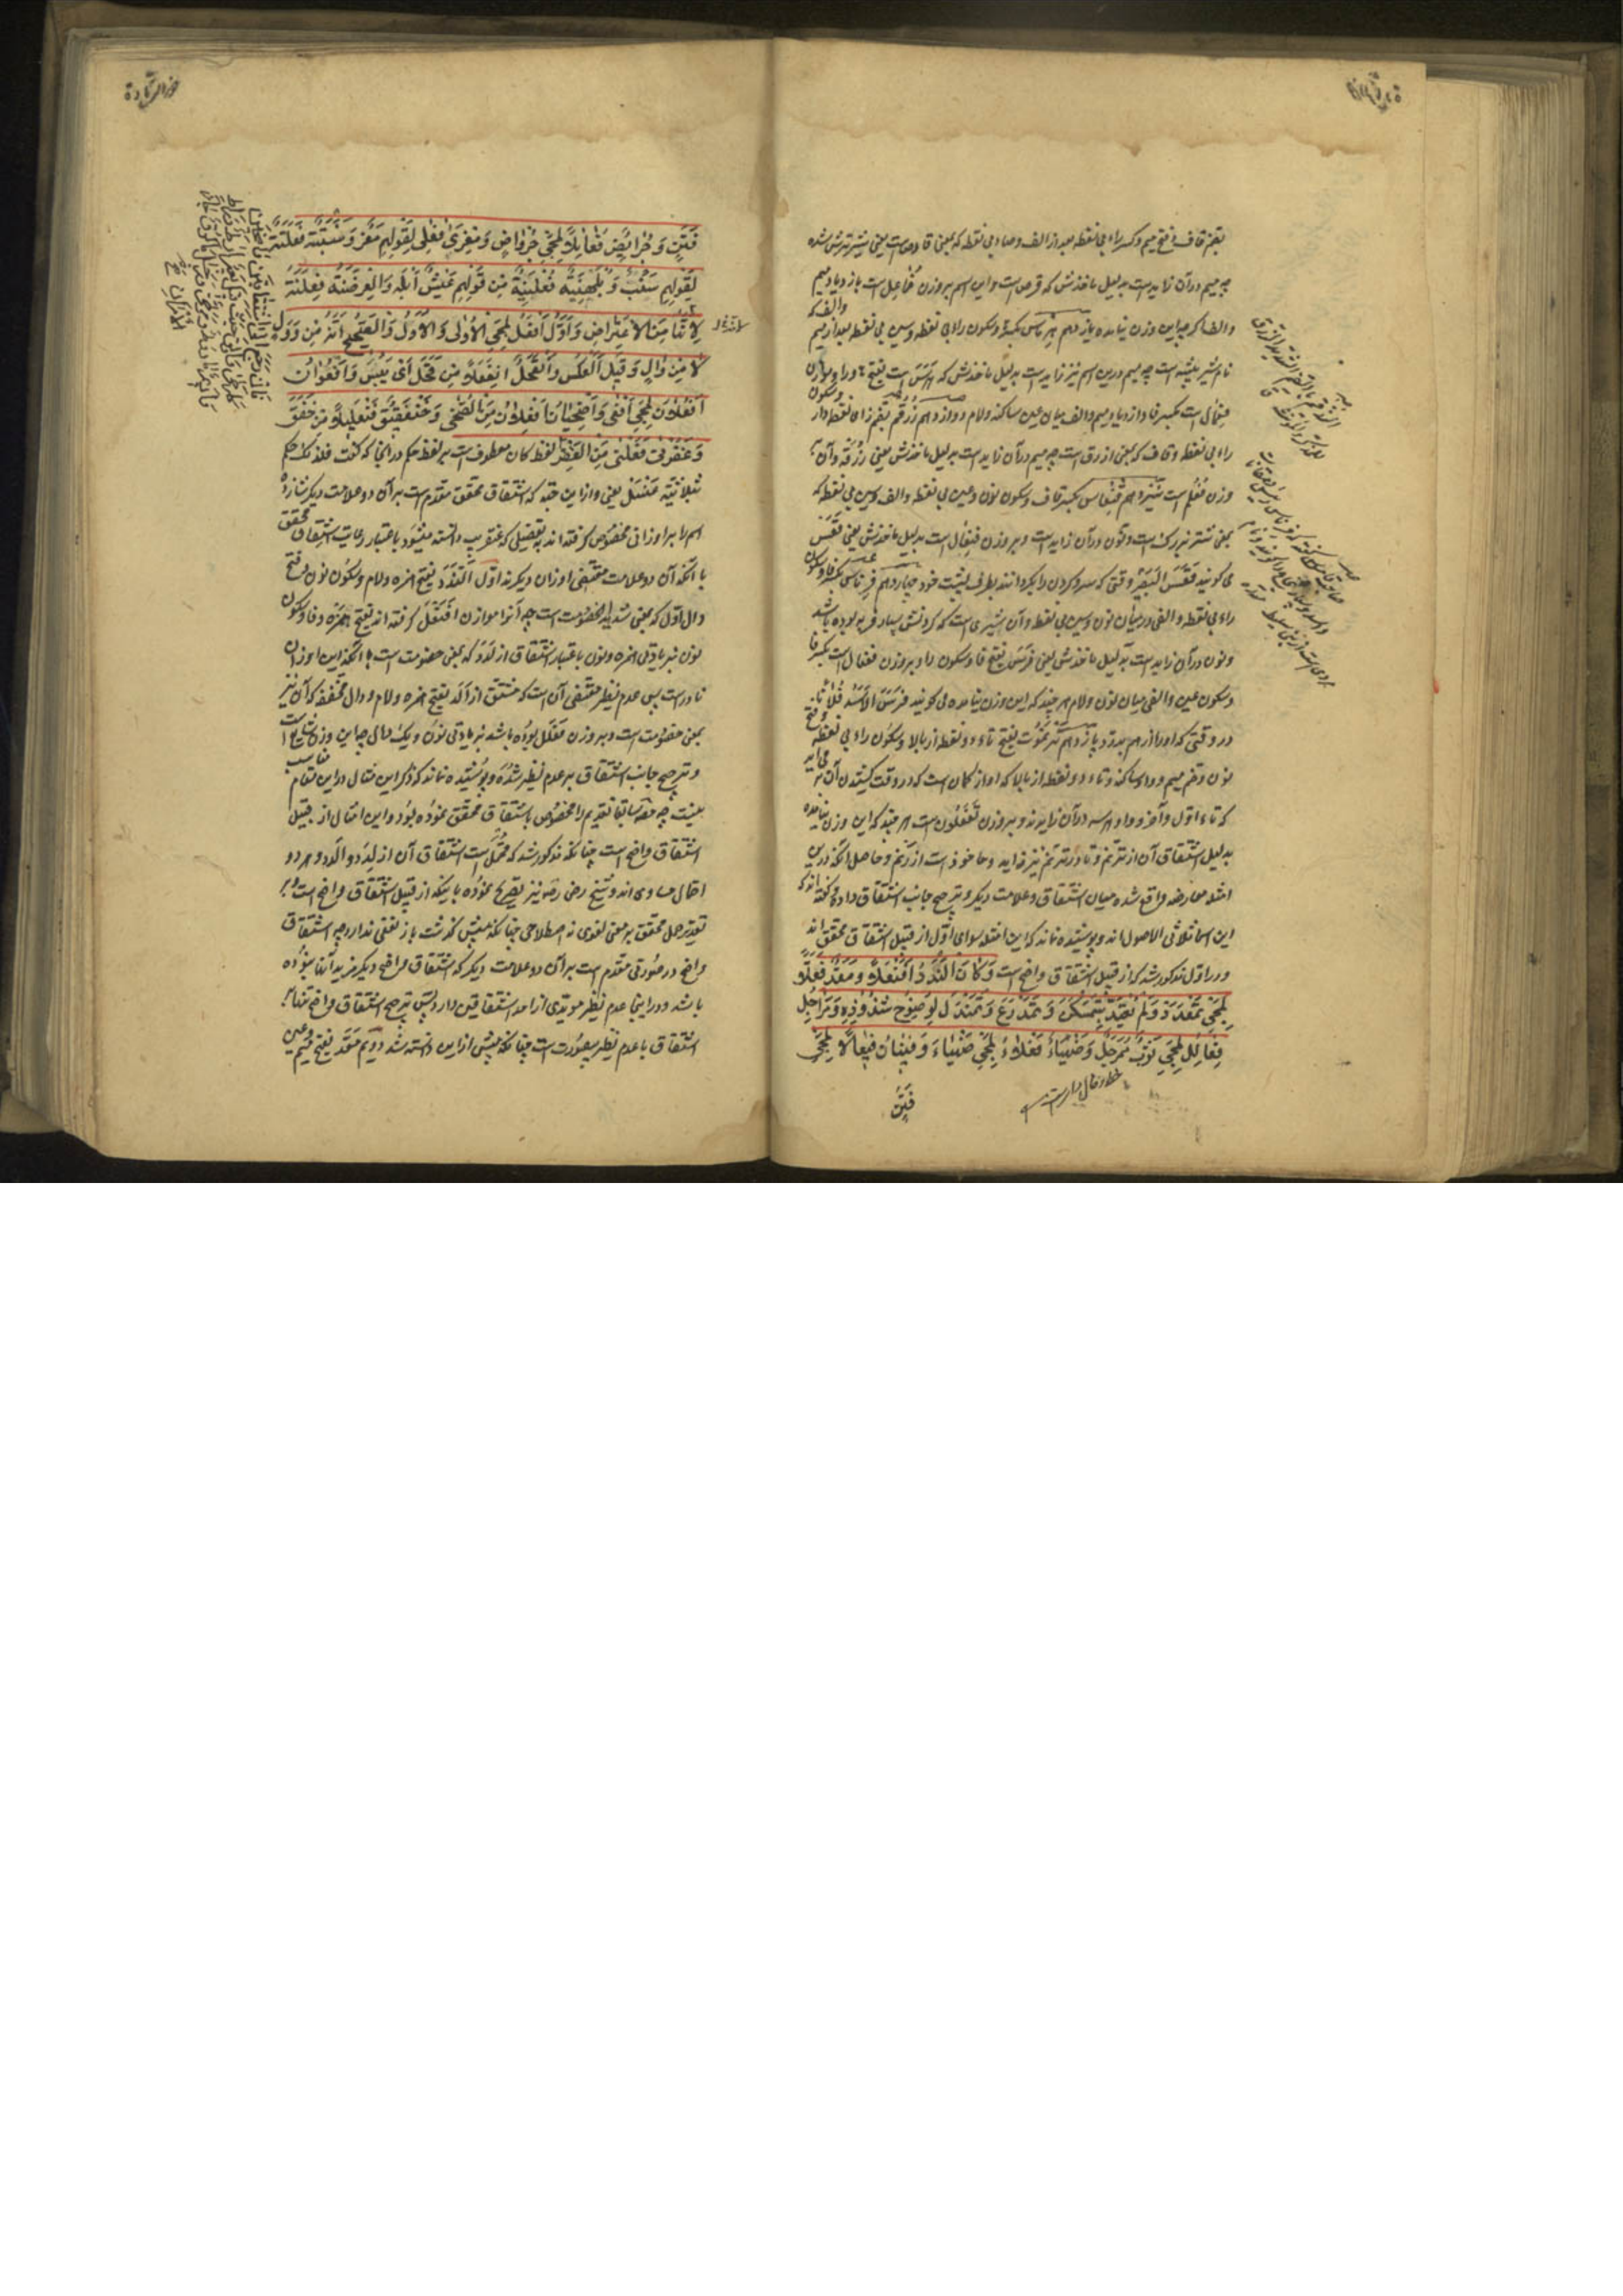 بضم قاف و فتح میم و کسر راء بی نقطه بعد از الف و صاد بی نقطه که بمعنی قارص است یعنی شیر ترش شده
چه میم در آن زاید است بدلیل ماخذش که قرص است و این اسم بر وزن فماعل است باز دیاد میم
والف اگر چه این وزن نیامده یازدهم هرماس بکسر ها و سکون راء بی نقطه و سین بی نقطه بعد از میم والف که
نام شیر بیشه است چه میم درین اسم نیز زاید است بدلیل ماخذش که هرس است بفتح ها و راء
فعمال است بکسر فا و ازدیاد میم والف میان عین ساکنه و لام دوازدهم زرقم بضم زای نقطه دار و سکون
راء بی نقطه و قاف که بمعنی ازرق است چه میم در آن زاید است بدلیل ماخذش یعنی زرقه و آن بر
وزن فعلم است سیزدهم قنعاس بکسر قاف و سکون نون و عین بی نقطه والف و سین بی نقطه که
بمعنی شتر بزرگ است و نون در آن زاید است و بر وزن فنعال است بدلیل ماخذش یعنی قعس
می گویند قعس البعیر وقتی که سر و گردن را بگرداند بطرف پشت خود چهاردهم فرناس بکسر فا و سکون
راء بی نقطه والفی در میان نون و سین بی نقطه و آن شیری است که گردنش بسیار فربه بوده باشد
و نون در آن زاید است بدلیل ماخذش یعنی فرس بفتح فا و سکون را و بر وزن فعنال است بکسر فا
و سکون عین والفی میان نون و لام هر چند که این وزن نیامده می گویند فرس الاسد فلانا
در وقتی که او را از هم بدرد پانزدهم ترنموت بفتح تاء دو نقطه از بالا و سکون راء بی نقطه و فتح
نون و ضم میم و واو ساکنه و تاء دو نقطه از بالا که آواز کمان است که در وقت کشیدن آن بر می آید
که تاء اول و آخر و واو هر سه در آن زایدند و بر وزن تفعلوت است هر چند که این وزن نیامده
بدلیل اشتقاق آن از ترنم و تا در ترنم نیز زاید و ماخوذ است از رنم و حاصل آنکه درین
امثله معارضه واقع شده میان اشتقاق و علامت دیگر و ترجیح جانب اشتقاق داده گفته اند که
این اسما ثلاثی الاصول اند و پوشیده نماند که این امثله سوای اول از قبیل اشتقاق محقق اند
و در اول مذکور شد که از قبیل اشتقاق واضح است وَكَانَ أَلَنْدَدٌ أَفَنْعَلًا وَمَعَدٌّ فَعَلًّا
لِمَجِيءِ تَمَعْدَدَ وَلَمْ يُعْتَدَّ بِتَمَسْكَنَ وَتَمَدْرَعَ وَتَمَنْدَلَ لِوُضُوحِ شُذُوذِهِ وَمَرَاجِلُ
فَعَالِلَ لِمَجِيءِ ثَوْبٌ مُمَرْجَلٌ وَضَهْيَاءُ فَعْلَاءُ لِمَجِيءِ ضَهْيَاءَ وَفَيْنَانٌ فَيْعَالًا لِمَجِيءِ
فَنَنٍ
فَنَنٍ وَجُرَائِضٌ فُعَائِلًا لِمَجِيءِ جِرْوَاضٍ وَمِعْزَى فِعْلَى لِقَوْلِهِمْ مَعْزٌ وَسَنْبَتَةٌ فَعْلَتَةً
لِقَوْلِهِمْ سَنْبٌ وَبُلَهْنِيَةٌ فُعَلْنِيَةً مِنْ قَوْلِهِمْ عَيْشٌ أَبْلَهُ وَالْعِرَضْنَةُ فِعَلْنَةً
لِأَنَّهَا مِنَ الِاعْتِرَاضِ وَأَوَّلُ أَفْعَلَ لِمَجِيءِ الْأُولَى وَالْأُوَلِ وَالصَّحِيحُ أَنَّهُ مِنْ وَوَلَ
لَا مِنْ وَأَلَ وَقِيلَ الْعَكْسُ وَإِنْقَحْلٌ إِنْفَعْلًا مِنْ قَحَلَ أَيْ يَبِسَ وَأُفْعُوَانٌ
أُفْعُلَانَ لِمَجِيءِ أَفْعَى وَإِضْحِيَانٌ إِفْعِلَانَ مِنَ الضُّحَى وَخَنْفَقِيقٌ فَنْعَلِيلًا مِنْ خَفَقَ
وَعَفَرْنَى فَعَلْنَى مِنَ الْعَفْرِ لفظ کان معطوف است بر لفظ حکم در آنجا که گفت فلذلک حکم
بثلاثیة عنسل یعنی و از این جهة که اشتقاق محقق مقدم است بر آن دو علامت دیگر
اسم را بر اوزانی مخصوص گرفته اند به تفصیلی که عنقریب دانسته میشود باعتبار رعایت اشتقاق محقق
با آنکه آن دو علامت مقتضی اوزان دیگرند اول النْدَد بفتح همزه و لام و سکون نون و فتح
دال اول که بمعنی شدید الخصومت است چه آنرا موازن افنعل گرفته اند بفتح همزه و فا و سکون
نون بزیادتی همزه و نون باعتبار اشتقاق از لدد که بمعنی خصومت است با آنکه این اوزان
نادر است پس عدم نظیر مقتضی آن است که مشتق از الد بفتح همزه و لام و دال مخفف که آن نیز
بمعنی خصومت است و بر وزن فعنلل بوده باشد بزیادتی نون و یک دال چه این وزن شایع است
و ترجیح جانب اشتقاق بر عدم نظیر شده و پوشیده نماند که ذکر این مثال در این مقام مناسب
نیست چه مصنف سابقا تقدیم را مخصوص باشتقاق محقق نموده بود و این مثال از قبیل
اشتقاق واضح است چنانکه مذکور شد که محتمل است اشتقاق آن از لدد و الدد و هر دو
احتمال مساوی اند و شیخ رضی رضه نیز تصریح نموده باینکه از قبیل اشتقاق واضح است و بر
تقدیر حمل محقق بر معنی لغوی نه اصطلاحی چنانکه پیش گذشت باز نفعی ندارد چه اشتقاق
واضح در صورتی مقدم است بر آن دو علامت دیگر که اشتقاق واضح دیگر مزید آنها نبوده
باشد و در اینجا عدم نظیر مویدی از احد اشتقاقین دارد پس ترجیح اشتقاق واضح تنها بر
اشتقاق با عدم نظیر بیصورت است چنانکه پیش از این دانسته شد دویم معد بفتح میم و عین